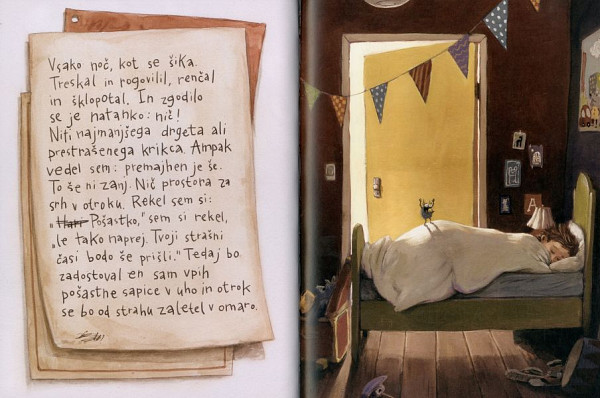 Vsako noč, kot se šika.
Treskal in rogovilil, renčal
in šklopotal. In zgodilo
se je natanko: nič!
Niti najmanjšega drgeta ali
prestrašenega krikca. Ampak
vedel sem: premajhen je še.
To še ni zanj. Nič prostora za
srh v otroku. Rekel sem si:
„Pošastko,“ sem si rekel,
„le tako naprej. Tvoji strašni
časi bodo še prišli.“ Tedaj bo
zadostoval en sam vpih
pošastne sapice v uho in otrok
se bo od strahu zaletel v omaro.
A